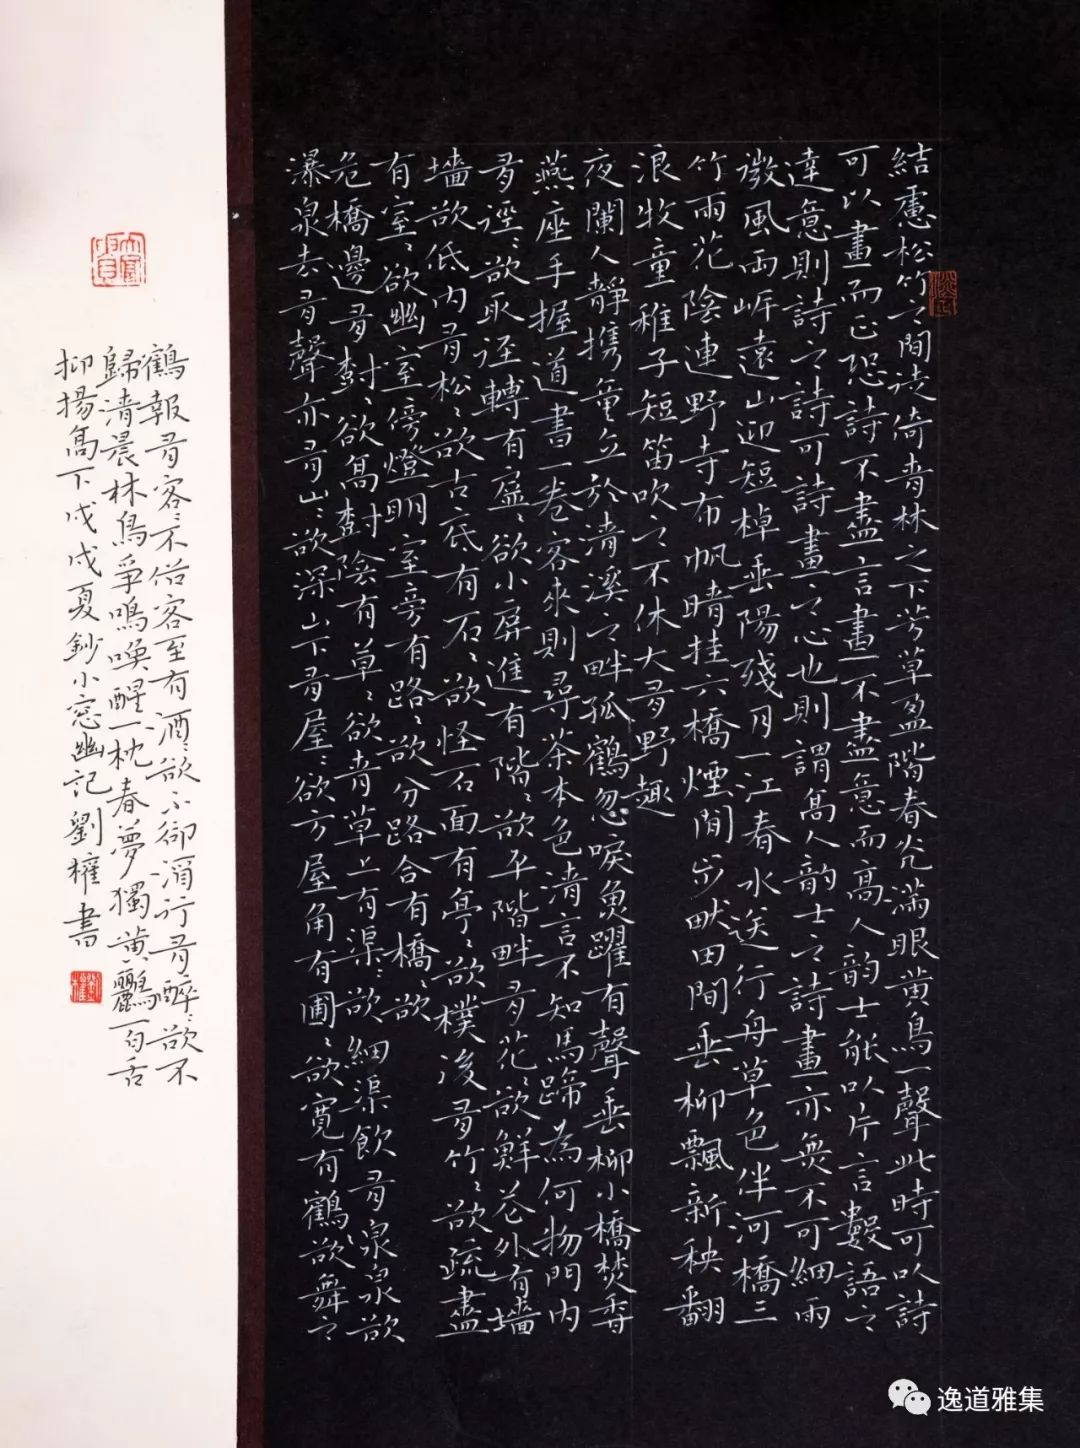 結廬松竹之間徙倚青林之下芳草盈階春光滿眼黄鳥一聲此時可以詩
可以畫而正恐詩不盡言畫不盡意而高人韵士能以片言數語之
達意則詩之詩可詩畫之心也則謂高人韵士之詩畫亦無不可細雨
微風兩岸遠山迎短棹垂陽殘月一江春水送行舟草色伴河橋三
竹雨花陰連野寺布帆晴挂六橋煙間步畎田間垂柳飄新秧翻
浪牧童稚子短笛吹之不休大有野趣
夜闌人靜携童立於清溪之畔孤鶴忽唳魚躍有聲垂柳小橋焚香
燕座手握道書一卷客來則尋茶本色清言不知馬蹄為何物門内
有逕逕欲取逕轉有屏屏欲小屏進有階階欲平階畔有花花欲鮮花外有墻
墻欲低内有松松欲古底有石石欲怪石面有亭亭欲樸後有竹竹欲疏盡
有室室欲幽室傍燈明室旁有路路欲分路合有橋橋欲
危橋邊有樹樹欲高樹陰有草草欲青草上有渠渠欲細渠飲有泉泉欲
瀑泉去有聲亦有山山欲深山下有屋屋欲方屋角有圃圃欲寬有鶴欲舞之
鶴報有客客不俗客至有酒酒欲不卻酒行有醉醉欲不
歸清晨林鳥爭鳴喚醒一枕春夢獨黄鸝一句舌
抑揚高下戊戌夏鈔小窓幽記劉權書
逸道雅集